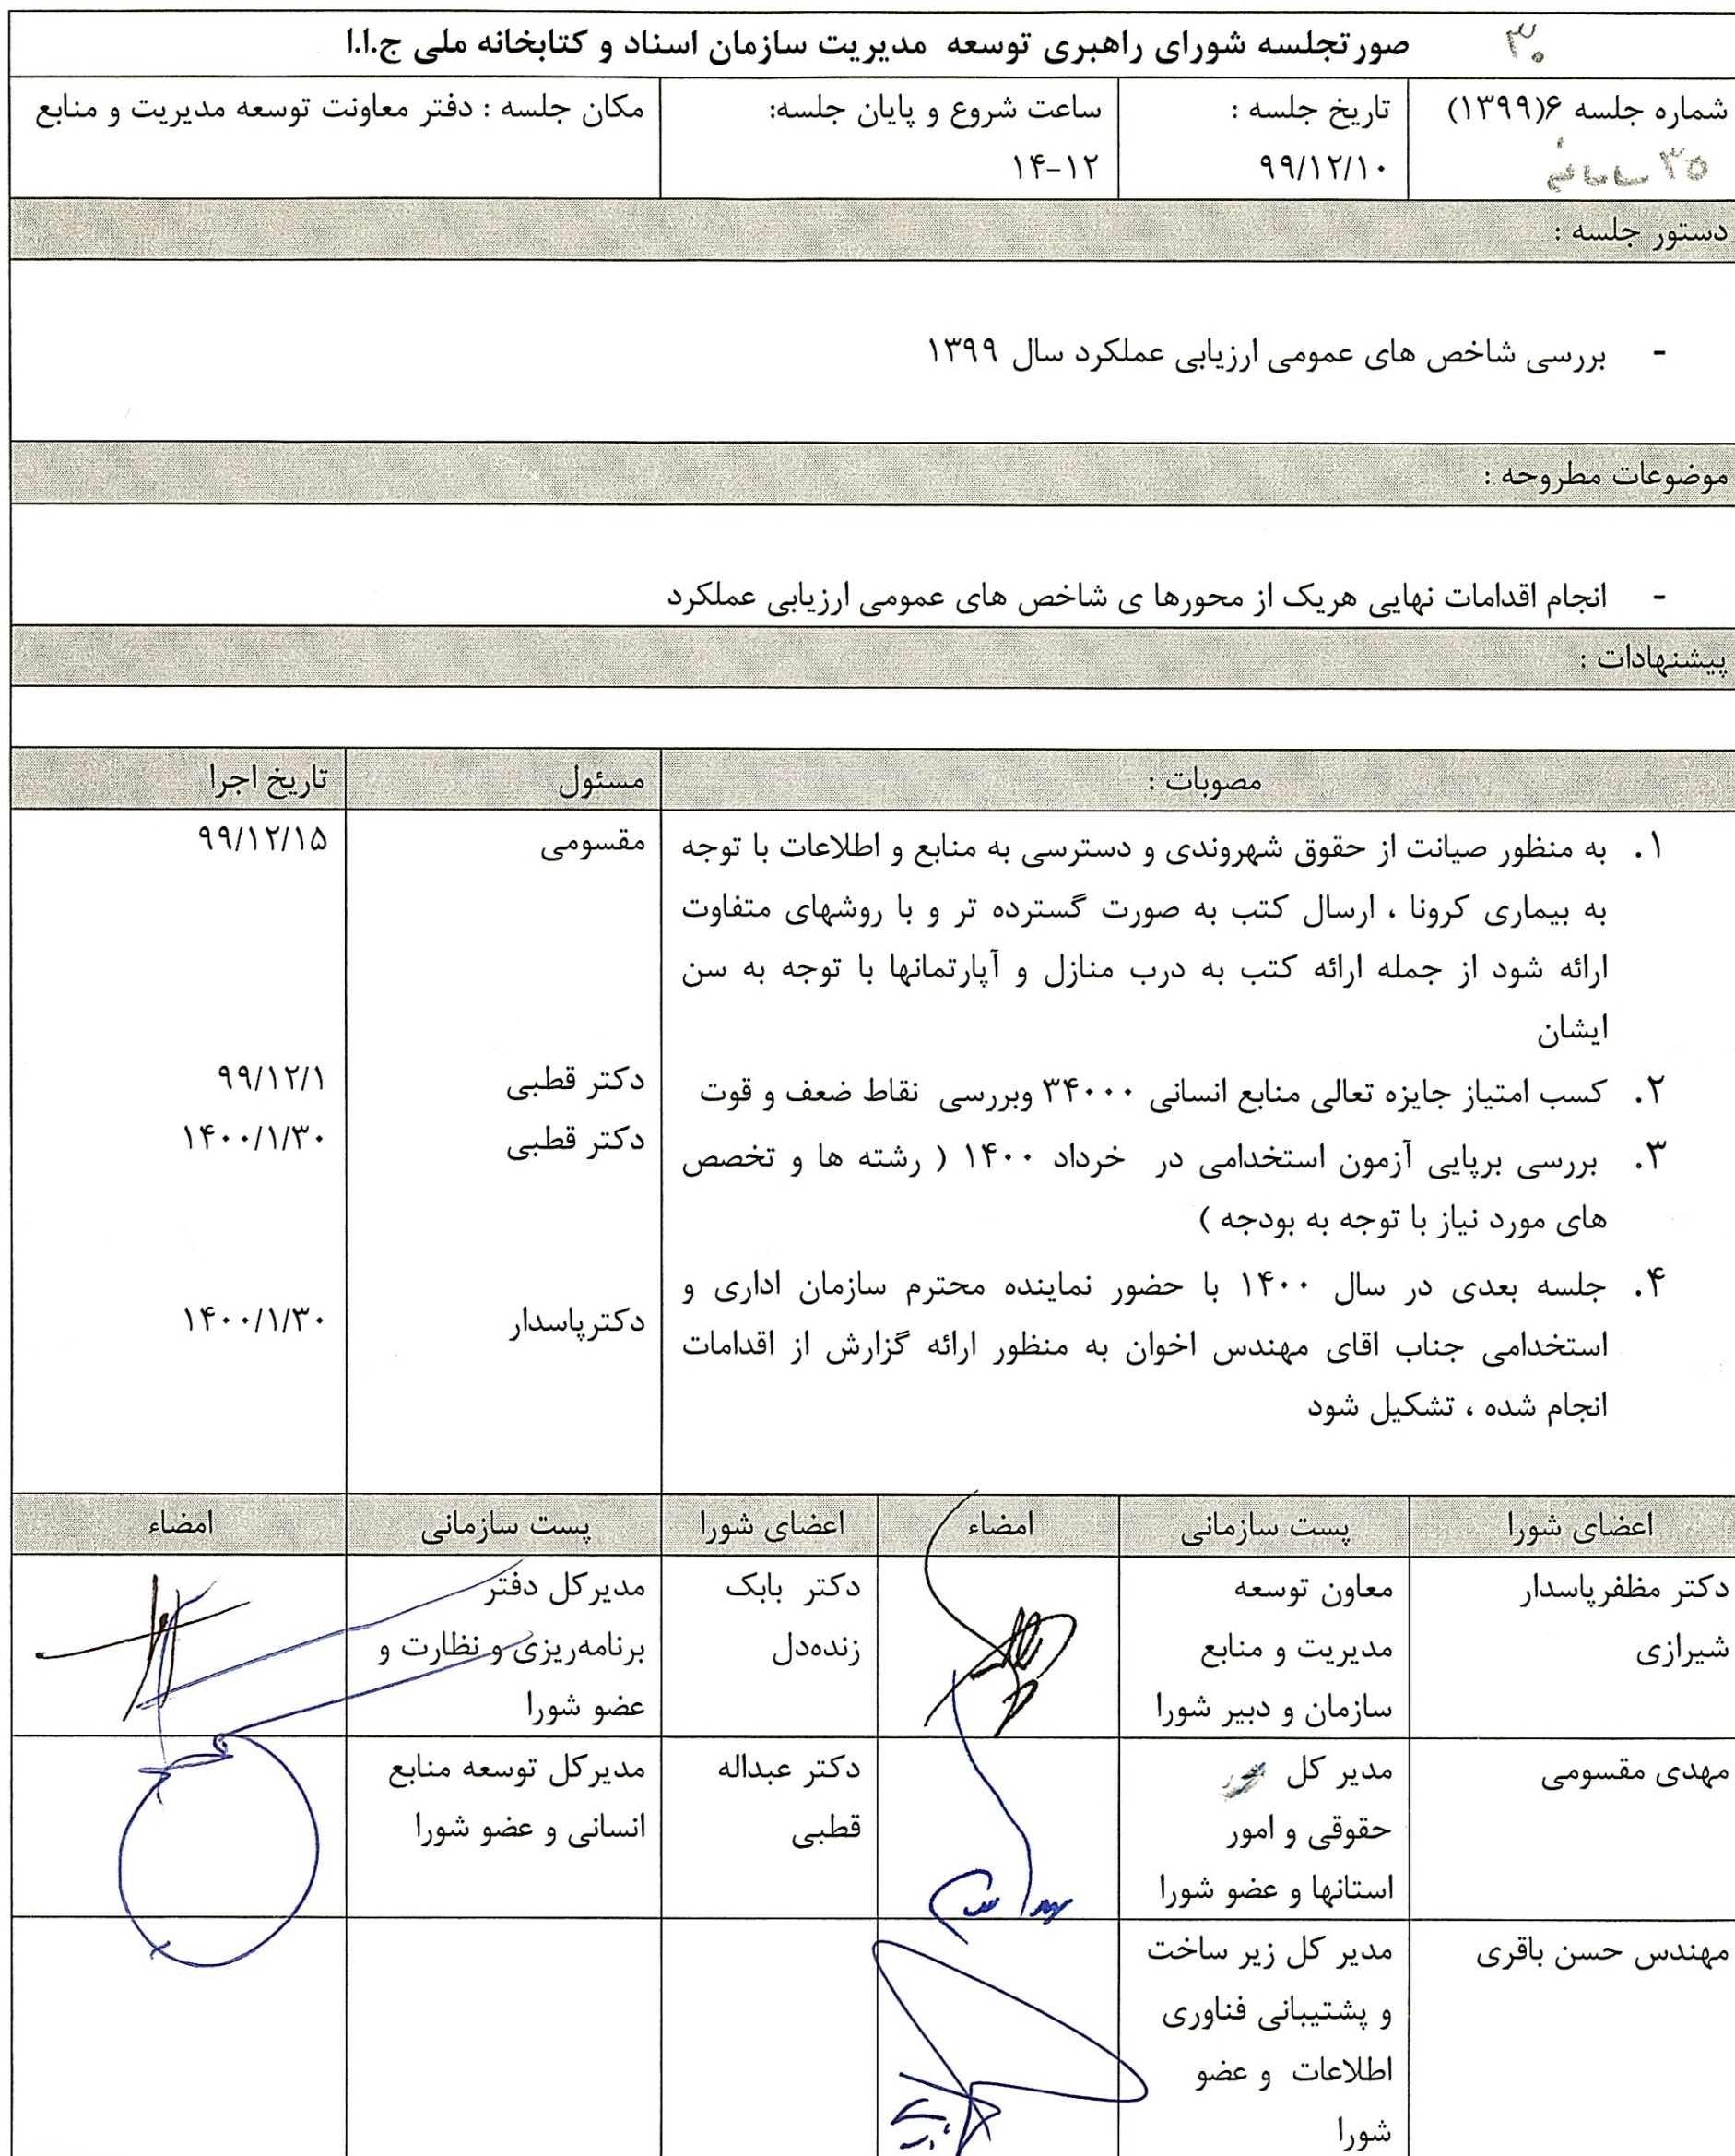 صورتجلسه شورای راهبری توسعه مدیریت سازمان اسناد و کتابخانه ملی ج.ا.ا
۳۰
شماره جلسه ۶(۱۳۹۹)
۳۵
تاریخ جلسه :
۹۹/۱۲/۱۰
ساعت شروع و پایان جلسه:
۱۴-۱۲
مکان جلسه : دفتر معاونت توسعه مدیریت و منابع
دستور جلسه :
- بررسی شاخص های عمومی ارزیابی عملکرد سال ۱۳۹۹
موضوعات مطروحه :
- انجام اقدامات نهایی هریک از محورها ی شاخص های عمومی ارزیابی عملکرد
پیشنهادات :
مصوبات :
مسئول
تاریخ اجرا
۱. به منظور صیانت از حقوق شهروندی و دسترسی به منابع و اطلاعات با توجه
به بیماری کرونا ، ارسال کتب به صورت گسترده تر و با روشهای متفاوت
ارائه شود از جمله ارائه کتب به درب منازل و آپارتمانها با توجه به سن
ایشان
مقسومی
۹۹/۱۲/۱۵
۲. کسب امتیاز جایزه تعالی منابع انسانی ۳۴۰۰۰ وبررسی نقاط ضعف و قوت
دکتر قطبی
۹۹/۱۲/۱
۳. بررسی برپایی آزمون استخدامی در خرداد ۱۴۰۰ ( رشته ها و تخصص
های مورد نیاز با توجه به بودجه )
دکتر قطبی
۱۴۰۰/۱/۳۰
۴. جلسه بعدی در سال ۱۴۰۰ با حضور نماینده محترم سازمان اداری و
استخدامی جناب اقای مهندس اخوان به منظور ارائه گزارش از اقدامات
انجام شده ، تشکیل شود
دکترپاسدار
۱۴۰۰/۱/۳۰
اعضای شورا
پست سازمانی
امضاء
اعضای شورا
پست سازمانی
امضاء
دکتر مظفرپاسدار
شیرازی
معاون توسعه
مدیریت و منابع
سازمان و دبیر شورا
دکتر بابک
زنده‌دل
مدیرکل دفتر
برنامه‌ریزی و نظارت و
عضو شورا
مهدی مقسومی
مدیر کل
حقوقی و امور
استانها و عضو شورا
دکتر عبداله
قطبی
مدیرکل توسعه منابع
انسانی و عضو شورا
مهندس حسن باقری
مدیر کل زیر ساخت
و پشتیبانی فناوری
اطلاعات و عضو
شورا